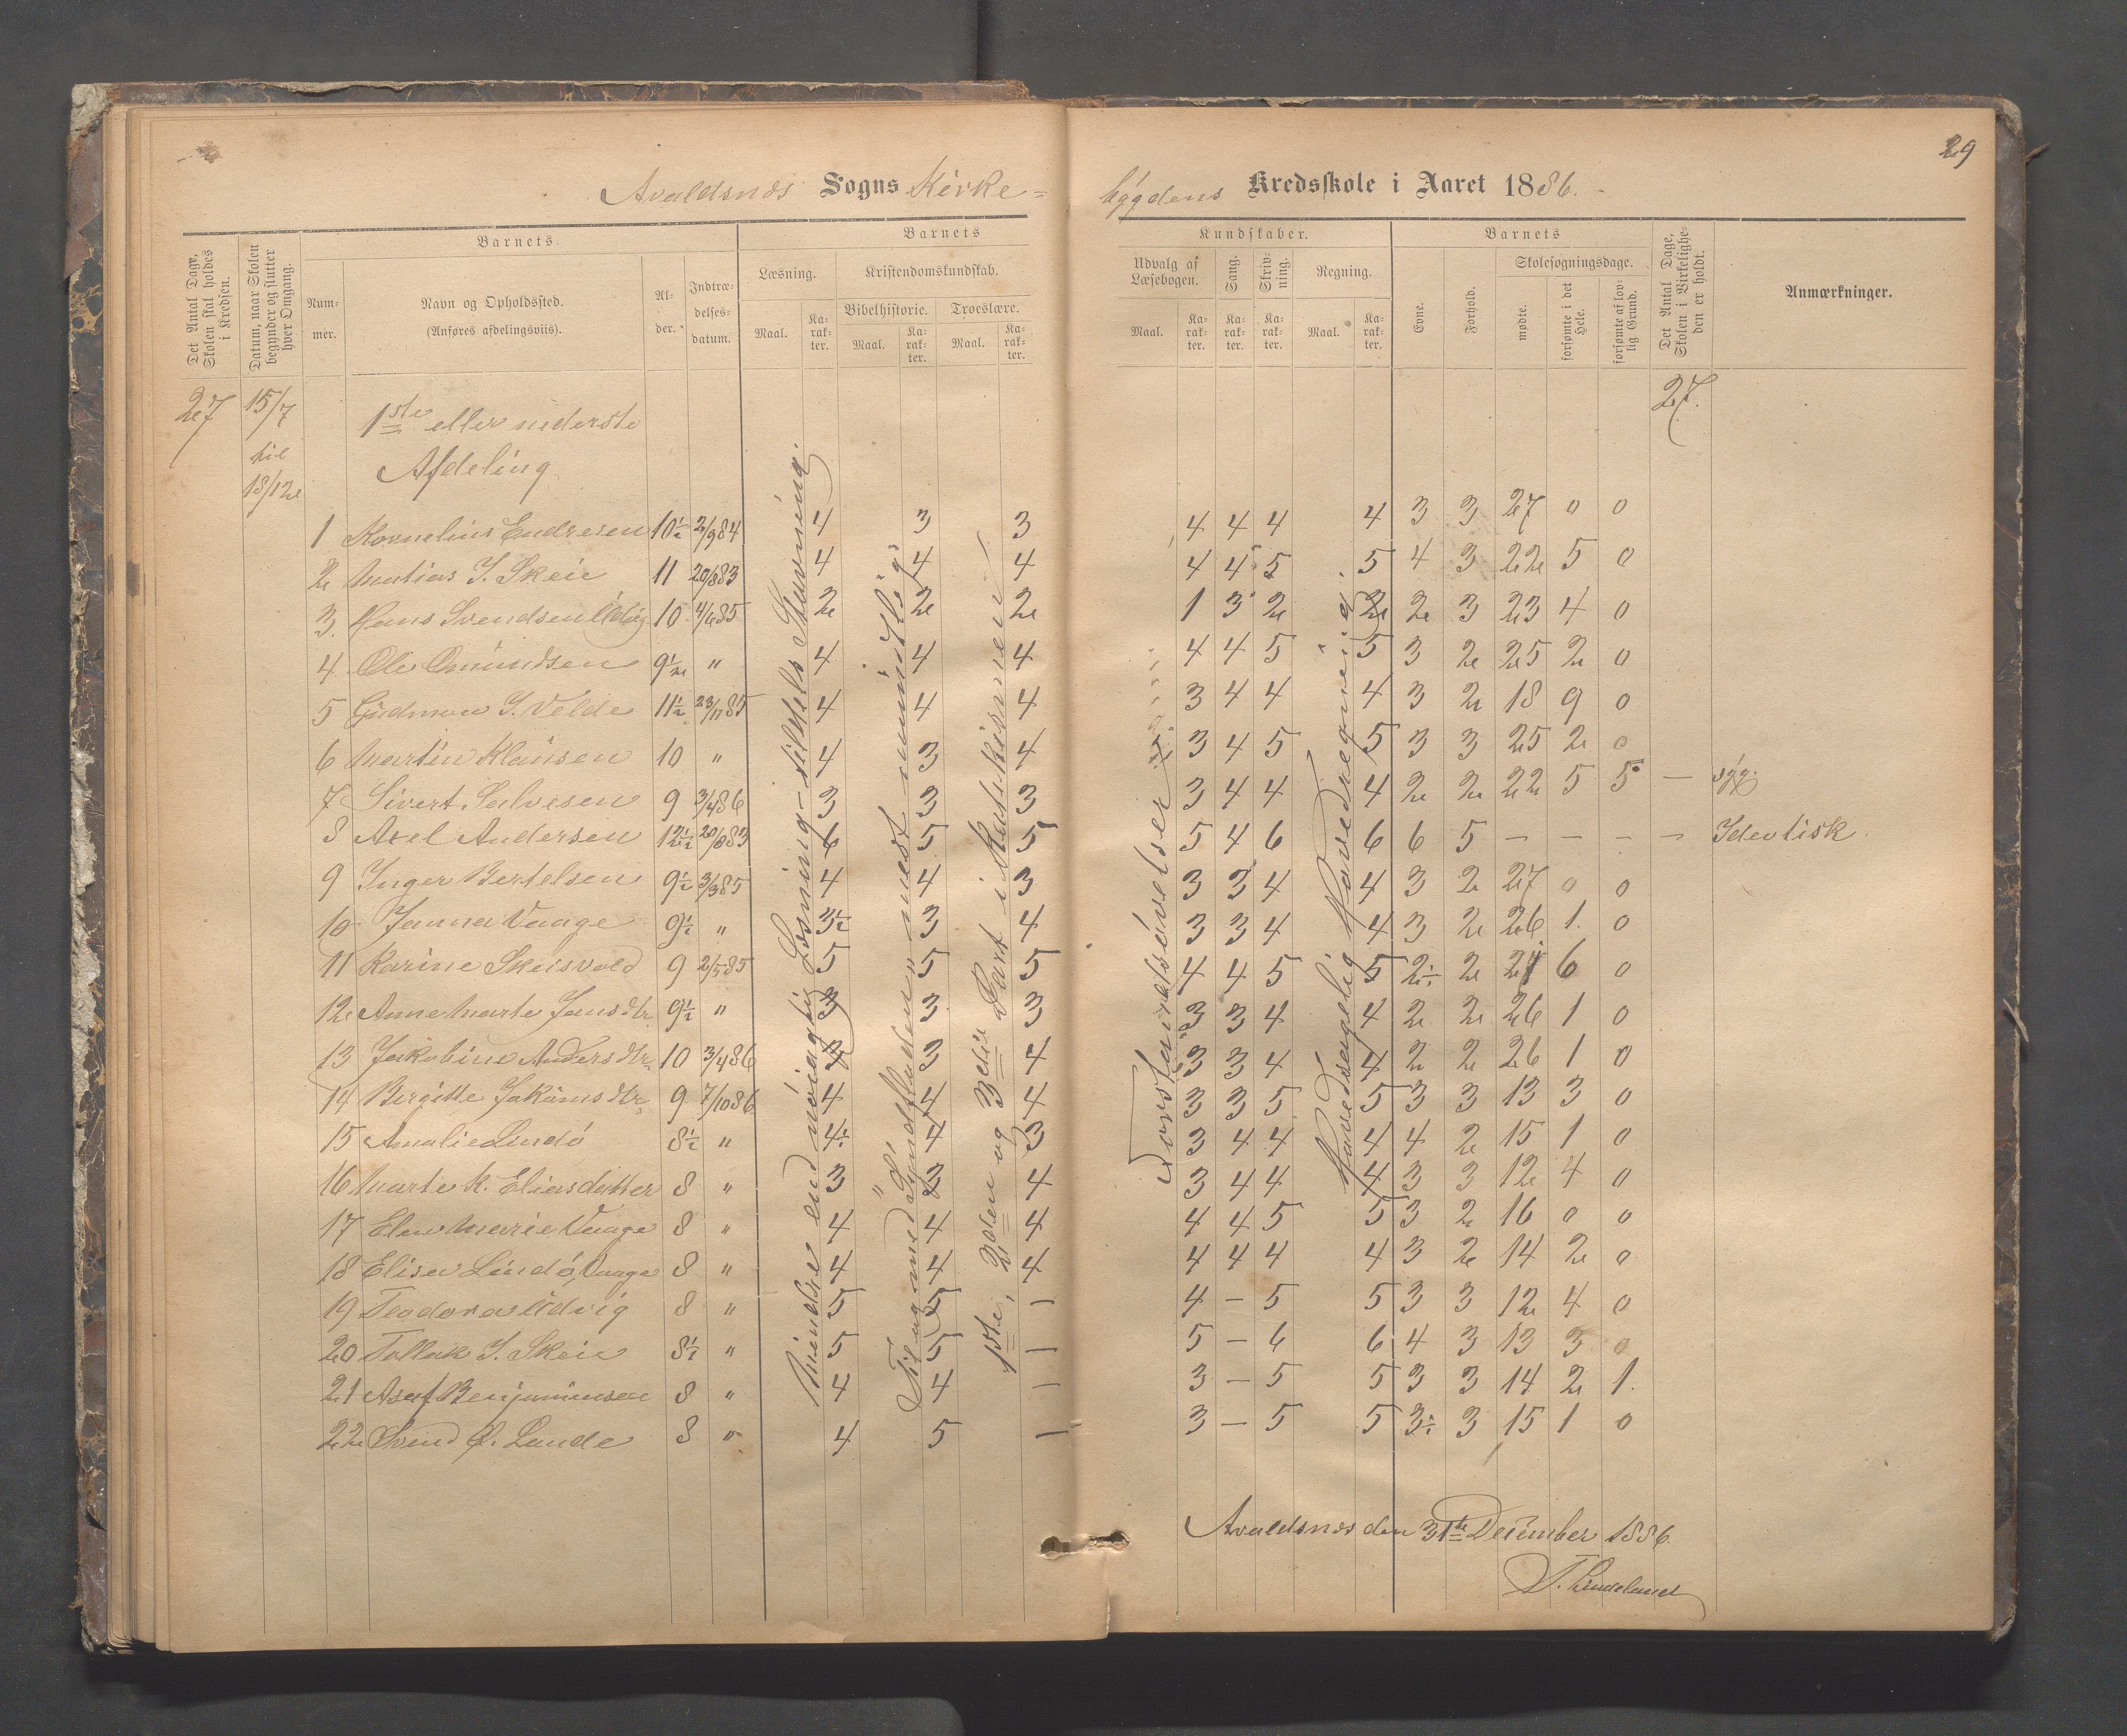 29
Avaldsnes Sogns Kirke=
bygdens Kredsskole i Aaret 1886.
Det Antal Dage, Skolen skal holdes i Kredsen.
Datum, naar Skolen begynder og slutter hver Omgang.
Barnets
Nummer.
Navn og Opholdssted.
(Anføres afdelingsviis).
Alder.
Indtrædelsesdatum.
Barnets
Læsning.
Maal.
Karakter.
Kristendomskundskab.
Bibelhistorie.
Maal.
Karakter.
Troeslære.
Maal.
Karakter.
Kundskaber.
Udvalg af Læsebogen.
Maal.
Karakter.
Sang.
Karakter.
Skrivning.
Karakter.
Regning.
Maal.
Karakter.
Barnets
Evne.
Forhold.
Skolesøgningsdage.
mødte.
forsømte i det Hele.
forsømte af lovlig Grund.
Det Antal Dage, Skolen i Virkeligheden er holdt.
Anmærkninger.
27 15/7 til 18/12 27.
1ste eller nederste
Afdeling
1 Kornelius Endresen 10½ 2/9 84 4 3 3 4 4 4 4 3 3 27 0 0
2 Matias J. Skeie 11 20/8 83 4 4 4 4 4 5 5 4 3 22 5 0
3. Hans Svendsen Utvig 10 4/6 85 2 2 2 1 3 2 2 2 3 23 4 0
4 Ole Omundsen 9½ " 4 4 4 4 4 5 5 3 2 25 2 0
5 Gudmon S. Velde 11½ 23/11 85 4 4 4 3 4 4 4 3 2 18 9 0
6 Martin Klausen 10 " 4 3 4 3 4 5 5 3 3 25 2 0
7 Sivert Salvesen 9 3/4 86 3 3 3 3 4 4 4 2 2 22 5 5 — syg.
8 Axel Andersen 12½ 20/8 83 6 5 5 5 4 6 6 6 5 — — — — Idiotisk.
9 Inger Bertelsen 9½ 3/3 85 4 4 3 3 3 4 4 3 2 27 0 0
10 Janna Vaage 9½ " 3½ 3 4 3 3 4 4 3 2 26 1. 0
11 Karine Skeisvold 9 2/5 85 5 5 5 4 4 5 5 2½ 2 21 6 0
12 Anne Marte Jansdtr. 9½ " 3 3 3 3 3 4 4 2 2 26 1 0
13 Jakobine Andersdtr. 10 3/4 86 3 3 4 3 3 4 4 2 2 26 1 0
14 Bergitte Jakobsdtr. 9 7/10 86 4 4 4 3 3 5 5 3 3 13 3 0
15 Amalie Lindø 8½ " 4½ 4 3 3 4 4 4 4 2 15 1 0
16 Marte K. Eliasdatter 8 " 3 3 4 3 4 4 4 3 3 12 4 0
17 Elen Marie Vaage 8 " 4 4 4 4 4 5 5 3 2 16 0 0
18 Elise Lindø, Vaage 8 " 4 4 4 4 4 4 4 3 2 14 2 0
19 Teodora Utvig 8 " 5 5 — 4 — 5 5 3 3 12 4 0
20 Tollak J. Skeie 8½ " 5 5 — 5 — 6 6 4 3 13 3 0
21 Asaf Benjaminsen 8 " 4 4 — 3 — 5 5 3 3 14 2 1.
22 Svend Ø. Lande 8 " 4 5 — 3 — 5 5 3½ 3 15 1 0
Mindre end nøiagtig Læsning – tildels Stavning.
Til og med "Syndfloden", mest mundtlig.
1ste, 2den og 3die Part i Katekismen.
Forstandsøvelser
Hovedsagelig Hovedregning.
Avaldsnes den 31te December 1886.
T. Lindeland